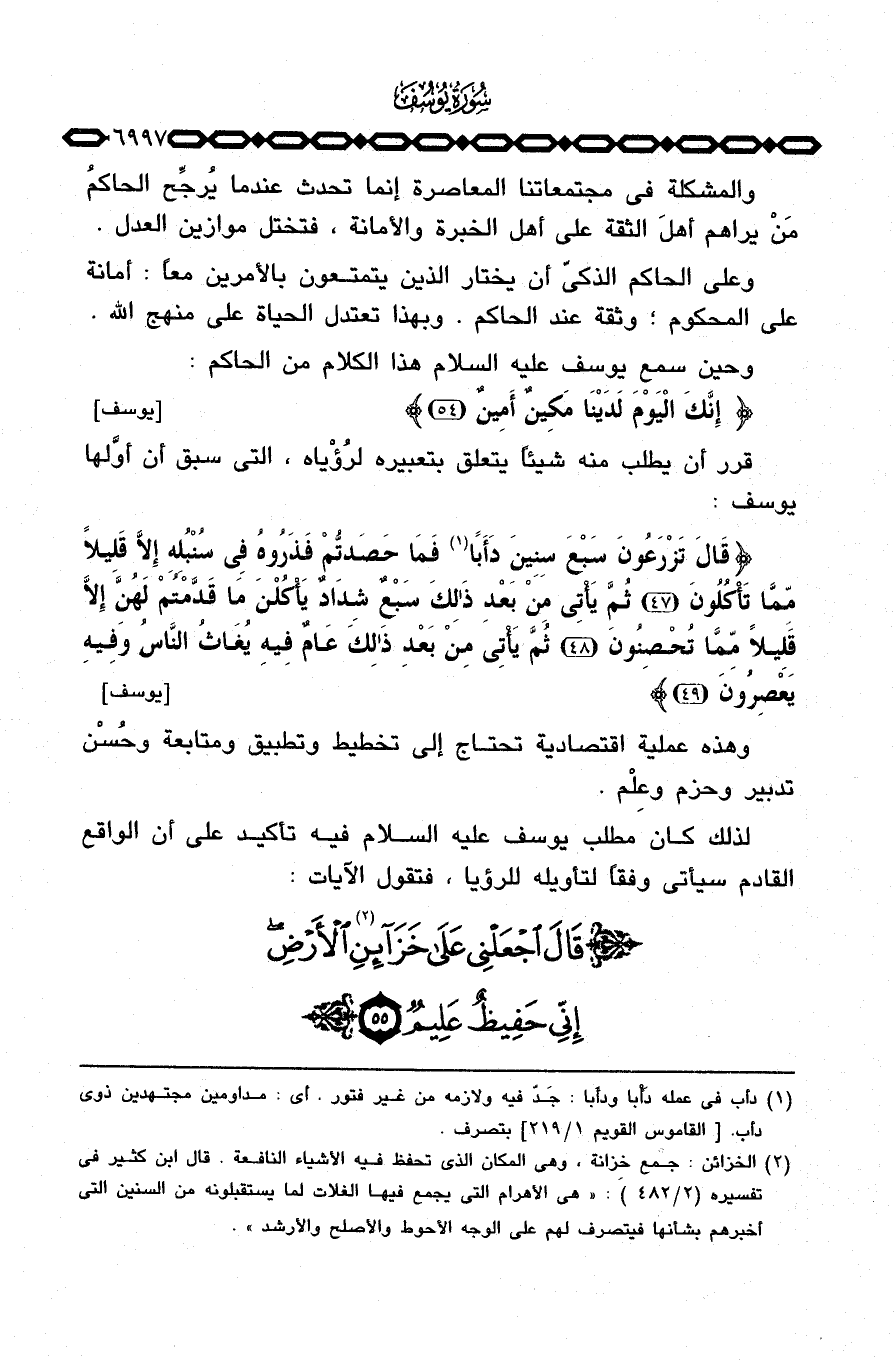 سُورَةُ يُوسُفَ
٦٩٩٧
والمشكلة فى مجتمعاتنا المعاصرة إنما تحدث عندما يُرجِّح الحاكمُ
مَنْ يراهم أهلَ الثقة على أهل الخبرة والأمانة ، فتختل موازين العدل .
وعلى الحاكم الذكىّ أن يختار الذين يتمتعون بالأمرين معاً : أمانة
على المحكوم ؛ وثقة عند الحاكم . وبهذا تعتدل الحياة على منهج الله .
وحين سمع يوسف عليه السلام هذا الكلام من الحاكم :
﴿ إِنَّكَ الْيَوْمَ لَدَيْنَا مَكِينٌ أَمِينٌ (٥٤) ﴾ [يوسف]
قرر أن يطلب منه شيئاً يتعلق بتعبيره لرُؤْياه ، التى سبق أن أوَّلها
يوسف :
﴿ قَالَ تَزْرَعُونَ سَبْعَ سِنِينَ دَأَبًا(١) فَمَا حَصَدتُّمْ فَذَرُوهُ فِى سُنْبُلِهِ إِلاَّ قَلِيلاً
مِّمَّا تَأْكُلُونَ (٤٧) ثُمَّ يَأْتِى مِنْ بَعْدِ ذَٰلِكَ سَبْعٌ شِدَادٌ يَأْكُلْنَ مَا قَدَّمْتُمْ لَهُنَّ إِلاَّ
قَلِيلاً مِّمَّا تُحْصِنُونَ (٤٨) ثُمَّ يَأْتِى مِنْ بَعْدِ ذَٰلِكَ عَامٌ فِيهِ يُغَاثُ النَّاسُ وَفِيهِ
يَعْصِرُونَ (٤٩) ﴾ [يوسف]
وهذه عملية اقتصادية تحتاج إلى تخطيط وتطبيق ومتابعة وحُسْن
تدبير وحزم وعِلْم .
لذلك كان مطلب يوسف عليه السلام فيه تأكيد على أن الواقع
القادم سيأتى وفقاً لتأويله للرؤيا ، فتقول الآيات :
قَالَ ٱجْعَلْنِى عَلَىٰ خَزَآئِنِ(٢) ٱلْأَرْضِۖ
إِنِّى حَفِيظٌ عَلِيمٌ ٥٥
(١) دأب فى عمله دأْبا ودأَبا : جَدّ فيه ولازمه من غير فتور . أى : مداومين مجتهدين ذوى
دأب. [ القاموس القويم ٢١٩/١] بتصرف .
(٢) الخزائن : جمع خزانة ، وهى المكان الذى تحفظ فيه الأشياء النافعة . قال ابن كثير فى
تفسيره (٤٨٢/٢ ) : « هى الأهرام التى يجمع فيها الغلات لما يستقبلونه من السنين التى
أخبرهم بشأنها فيتصرف لهم على الوجه الأحوط والأصلح والأرشد » .